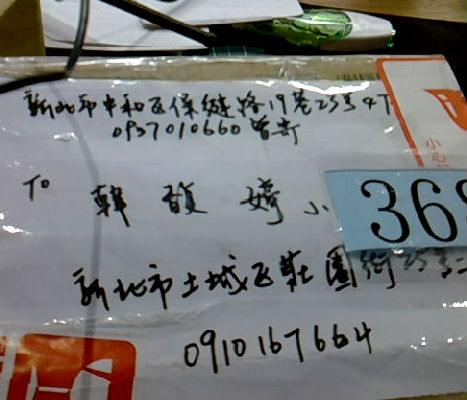 新北市中和區保健路19巷23号4F
0937010660 曾寄
To 韓馥嫆 小
369
新北市土城区莊園街25号二
0910167664
小心